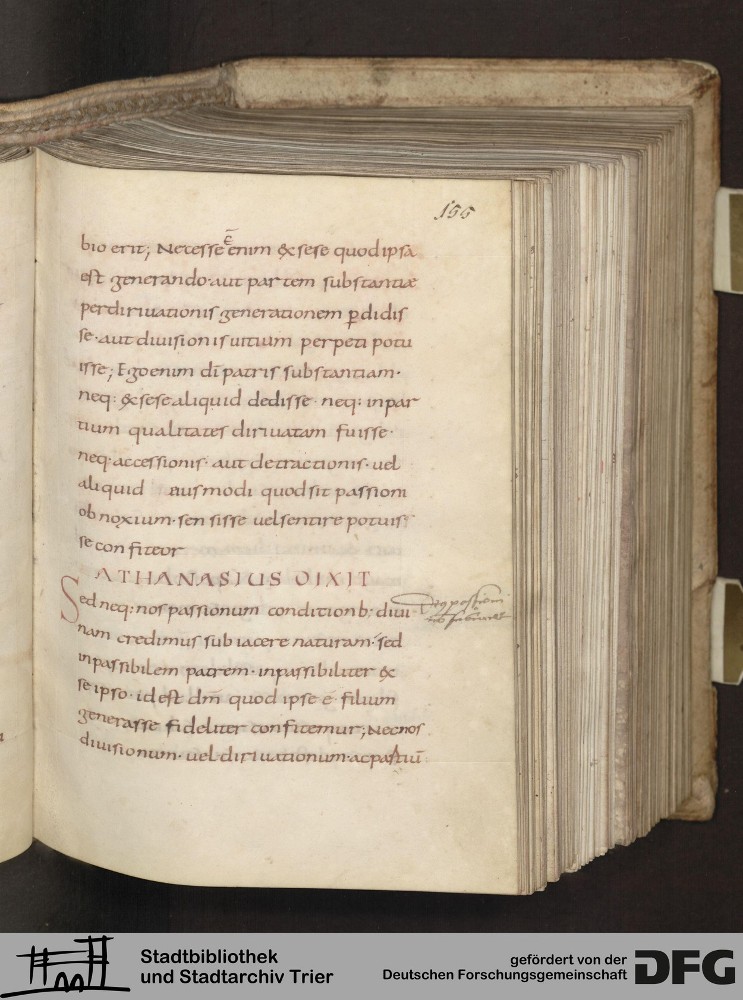 155
bio erit; Necesse ē enim &sese quod ipsa
est generando· aut partem substantiæ
per diriuationis generationem ꝑdidis
se· aut diuisionis uitium perpeti potu
isse; Ego enim dī patris substantiam·
neq: &sese aliquid dedisse· neq: in par
tium qualitates diriuatam fuisse·
neq· accessionis· aut detractionis· uel
aliquid ausmodi quod sit passioni
obnoxium· sensisse uel sentire potuis
se confiteor
ATHANASIUS DIXIT
Sed neq: nos passionum condition b; diui
nam credimus subiacere naturam· sed
inpassibilem patrem· inpassibiliter &
se ipso· id est dm̄ quod ipse ē filium
generasse fideliter confitemur; Nec nos
diuisionum· uel diriuationum· ac partiū
Stadtbibliothek
und Stadtarchiv Trier
gefördert von der
Deutschen Forschungsgemeinschaft
DFG